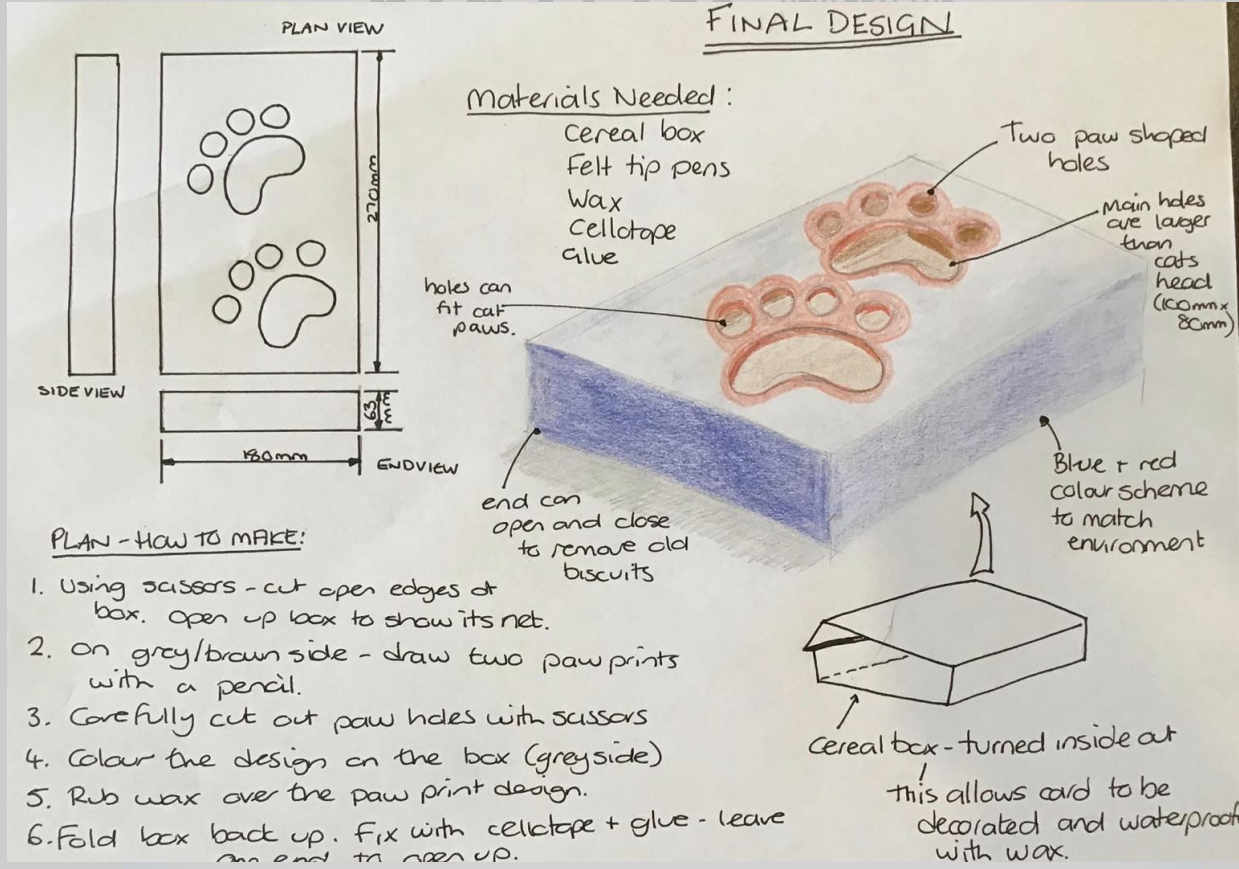 FINAL DESIGN
PLAN VIEW
270mm
SIDE VIEW
63
mm
180mm
END VIEW
Materials Needed:
Cereal box
Felt tip pens
Wax
Cellotape
Glue
Two paw shaped
holes
Main holes
are larger
than
cats
head
(100mm x
80mm)
holes can
fit cat
paws.
end can
open and close
to remove old
biscuits
Blue + red
colour scheme
to match
environment
PLAN - HOW TO MAKE:
1. Using scissors - cut open edges of
box. Open up box to show its net.
2. On grey/brown side - draw two paw prints
with a pencil.
3. Carefully cut out paw holes with scissors
4. Colour the design on the box (grey side)
5. Rub wax over the paw print design.
6. Fold box back up. Fix with cellotape + glue - leave
end to open up.
Cereal box - turned inside out
this allows card to be
decorated and waterproof
with wax.